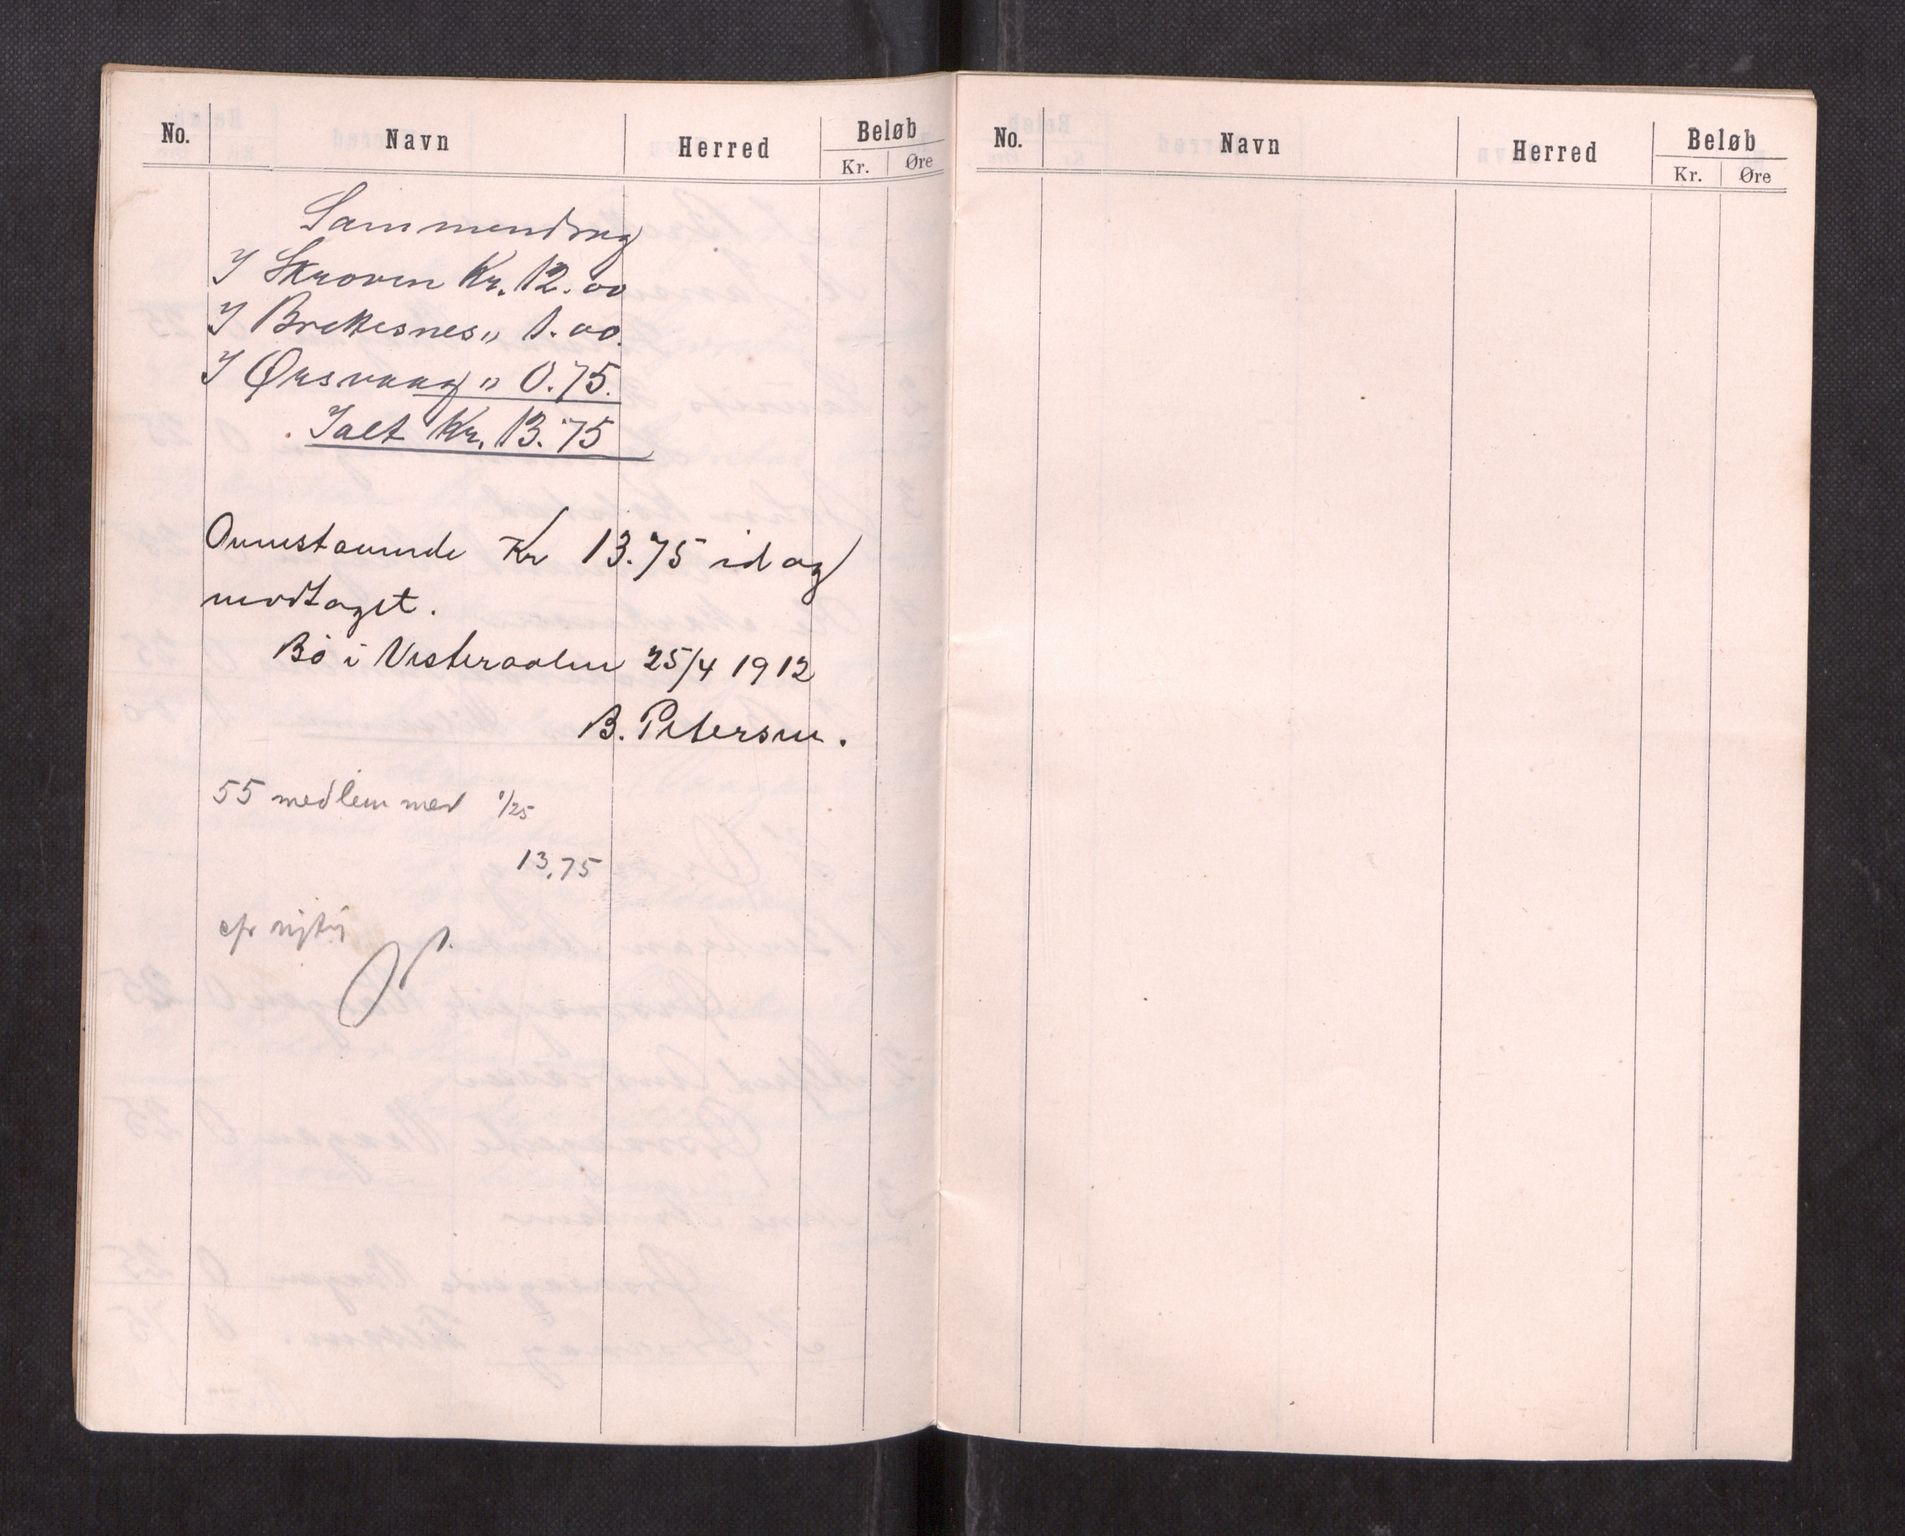 No. Navn Herred Beløb
Kr. Øre
Sammendrag
I Skroven Kr. 12.00
I Brettesnes „ 1.00.
I Ørsvaag „ 0.75.
Ialt Kr. 13.75
Ovenstaaende Kr 13.75 idag
modtaget.
Bø i Vesteraalen 25/4 1912
B. Petersen.
55 medlemmer /25
13,75
No. Navn Herred Beløb
Kr. Øre